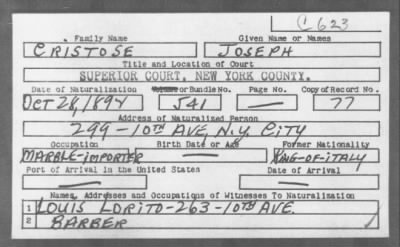 C 623
Family Name Given Name or Names
CRISTOSE JOSEPH
Title and Location of Court
SUPERIOR COURT, NEW YORK COUNTY.
Date of Naturalization Volume or Bundle No. Page No. Copy of Record No.
OCT 28, 1894 541 — 77
Address of Naturalized Person
299-10TH AVE, N.Y. CITY
Occupation Birth Date or Age Former Nationality
MARBLE-IMPORTER — KING-OF-ITALY
Port of Arrival in the United States Date of Arrival
— —
Names, Addresses and Occupations of Witnesses To Naturalization
1 LOUIS LORITO-263-10TH AVE.
2 BARBER